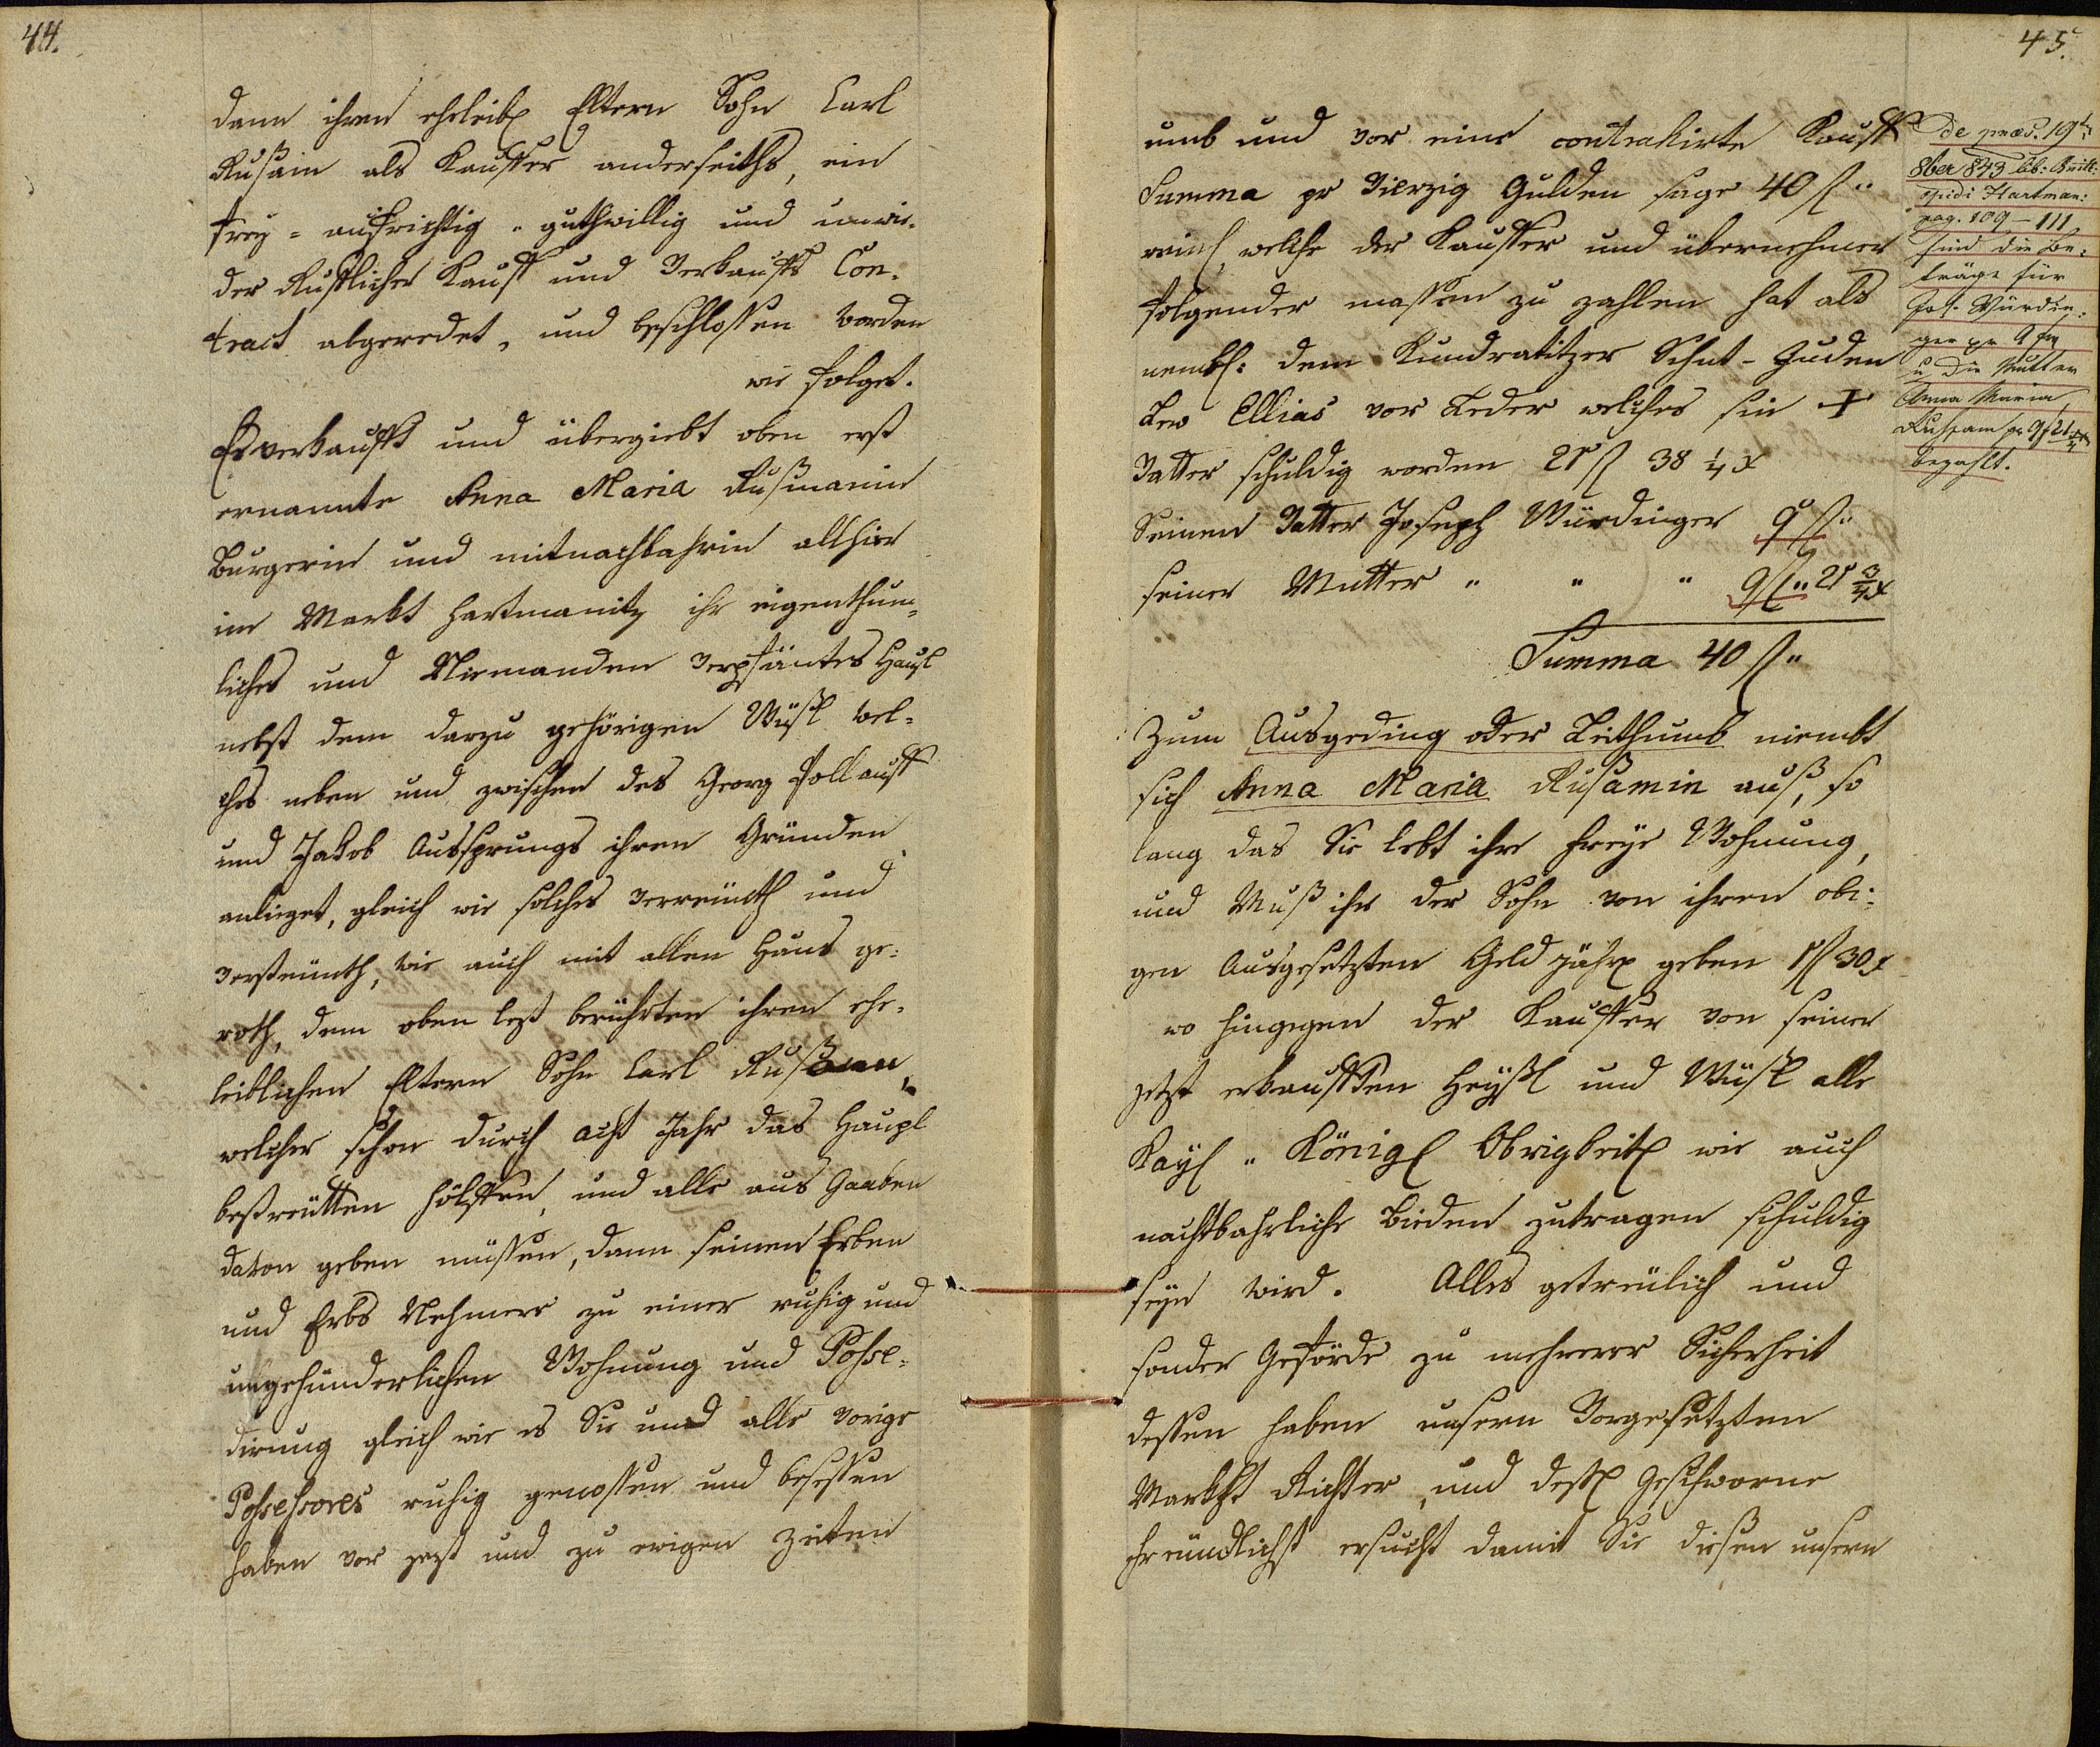 44.
dann ihren ehrleibl Eltern Sohn Carl
Rußain als Kauffer anderseiths, ein
frey- aufrichtig- guthwillig und unwie-
der Rufflicher Kauff und Verkauffs Con-
tract abgeredet, und beschlossen worden
wie folget.
Es verkaufft und übergiebt oben erst
ernannte Anna Maria Rußmanin
Burgerin und mitnachbahrin allhier
im Markt Hartmanitz ihr eigenthum-
liches und Niemanden verpfäntes Häußl
nebst dem darzu gehörigen Wüßl wel-
ches neben und zwischen des Georg Pollauff
und Jakob Aussprungs ihren Gründen
anlieget, gleich wie solches verreinth und
versteinth, wie auch mit allen Haus ge-
roth, dem oben lest berührten ihren ehe-
leiblichen Eltern Sohn Carl Rußam,
welcher schon durch acht Jahr das Häusl
bestreütten hölffen, und alle aus Gaaben
davon geben müssen, dann seinen Erben
und Erbs Nehmere zu einer ruhig und
ungehünderlichen Wohnung und Posse-
dirung gleich wie es Sie und alle vorige
Possessores ruhig genossen und besessen
haben vor jezt und zu ewigen Zeiten
45.
umb und vor eine contrahirte Kauff
Summa pr Vierzig Gulden sage 40 f"
reinl, welche der Kauffer und übernehmer
folgender massen zu zahlen hat als
nembl: dem Kundratitzer Schut-Juden
Lew Ellias vor Leder welches sein +
Vatter schuldig worden 21 f 38 1/4 x
Seinen Vatter Joseph Würdinger 9 f"
seiner Mutter " " " 9 f" 21 3/4 x
Summa 40 f"
Zum Ausgeding oder Leithumb niembt
sich Anna Maria Rußamin auß, so
lang das Sie lebt ihre freye Wohnung,
und Muß ihr der Sohn von ihren obi-
gen Ausgesetzten Geld jährl geben 1 f 30 x
wo hingegen der Kauffer von seiner
jetzt erkaufften Heyßl und Wüßl alle
Kayl " Königl Obrigkeitl wie auch
nachtbahrliche Bürden zutragen schuldig
seyn wird. Alles getreülich und
sonder Geförde zu mehrerer Sicherheit
dessen haben unsern Vorgesetzten
Markht Richter, und dessl Geschworne
freündlichst ersucht damit Sie diesen unsern
de praes. 19t
8ber 843 lib: Quitt:
opidi Hartman:
pag. 109-111
sind die Be-
träge für
Jos. Würdin-
ger pr 9 f
u die Mutter
Anna Maria
Rußam pr 9 f 21 3/4 x
bezahlt.